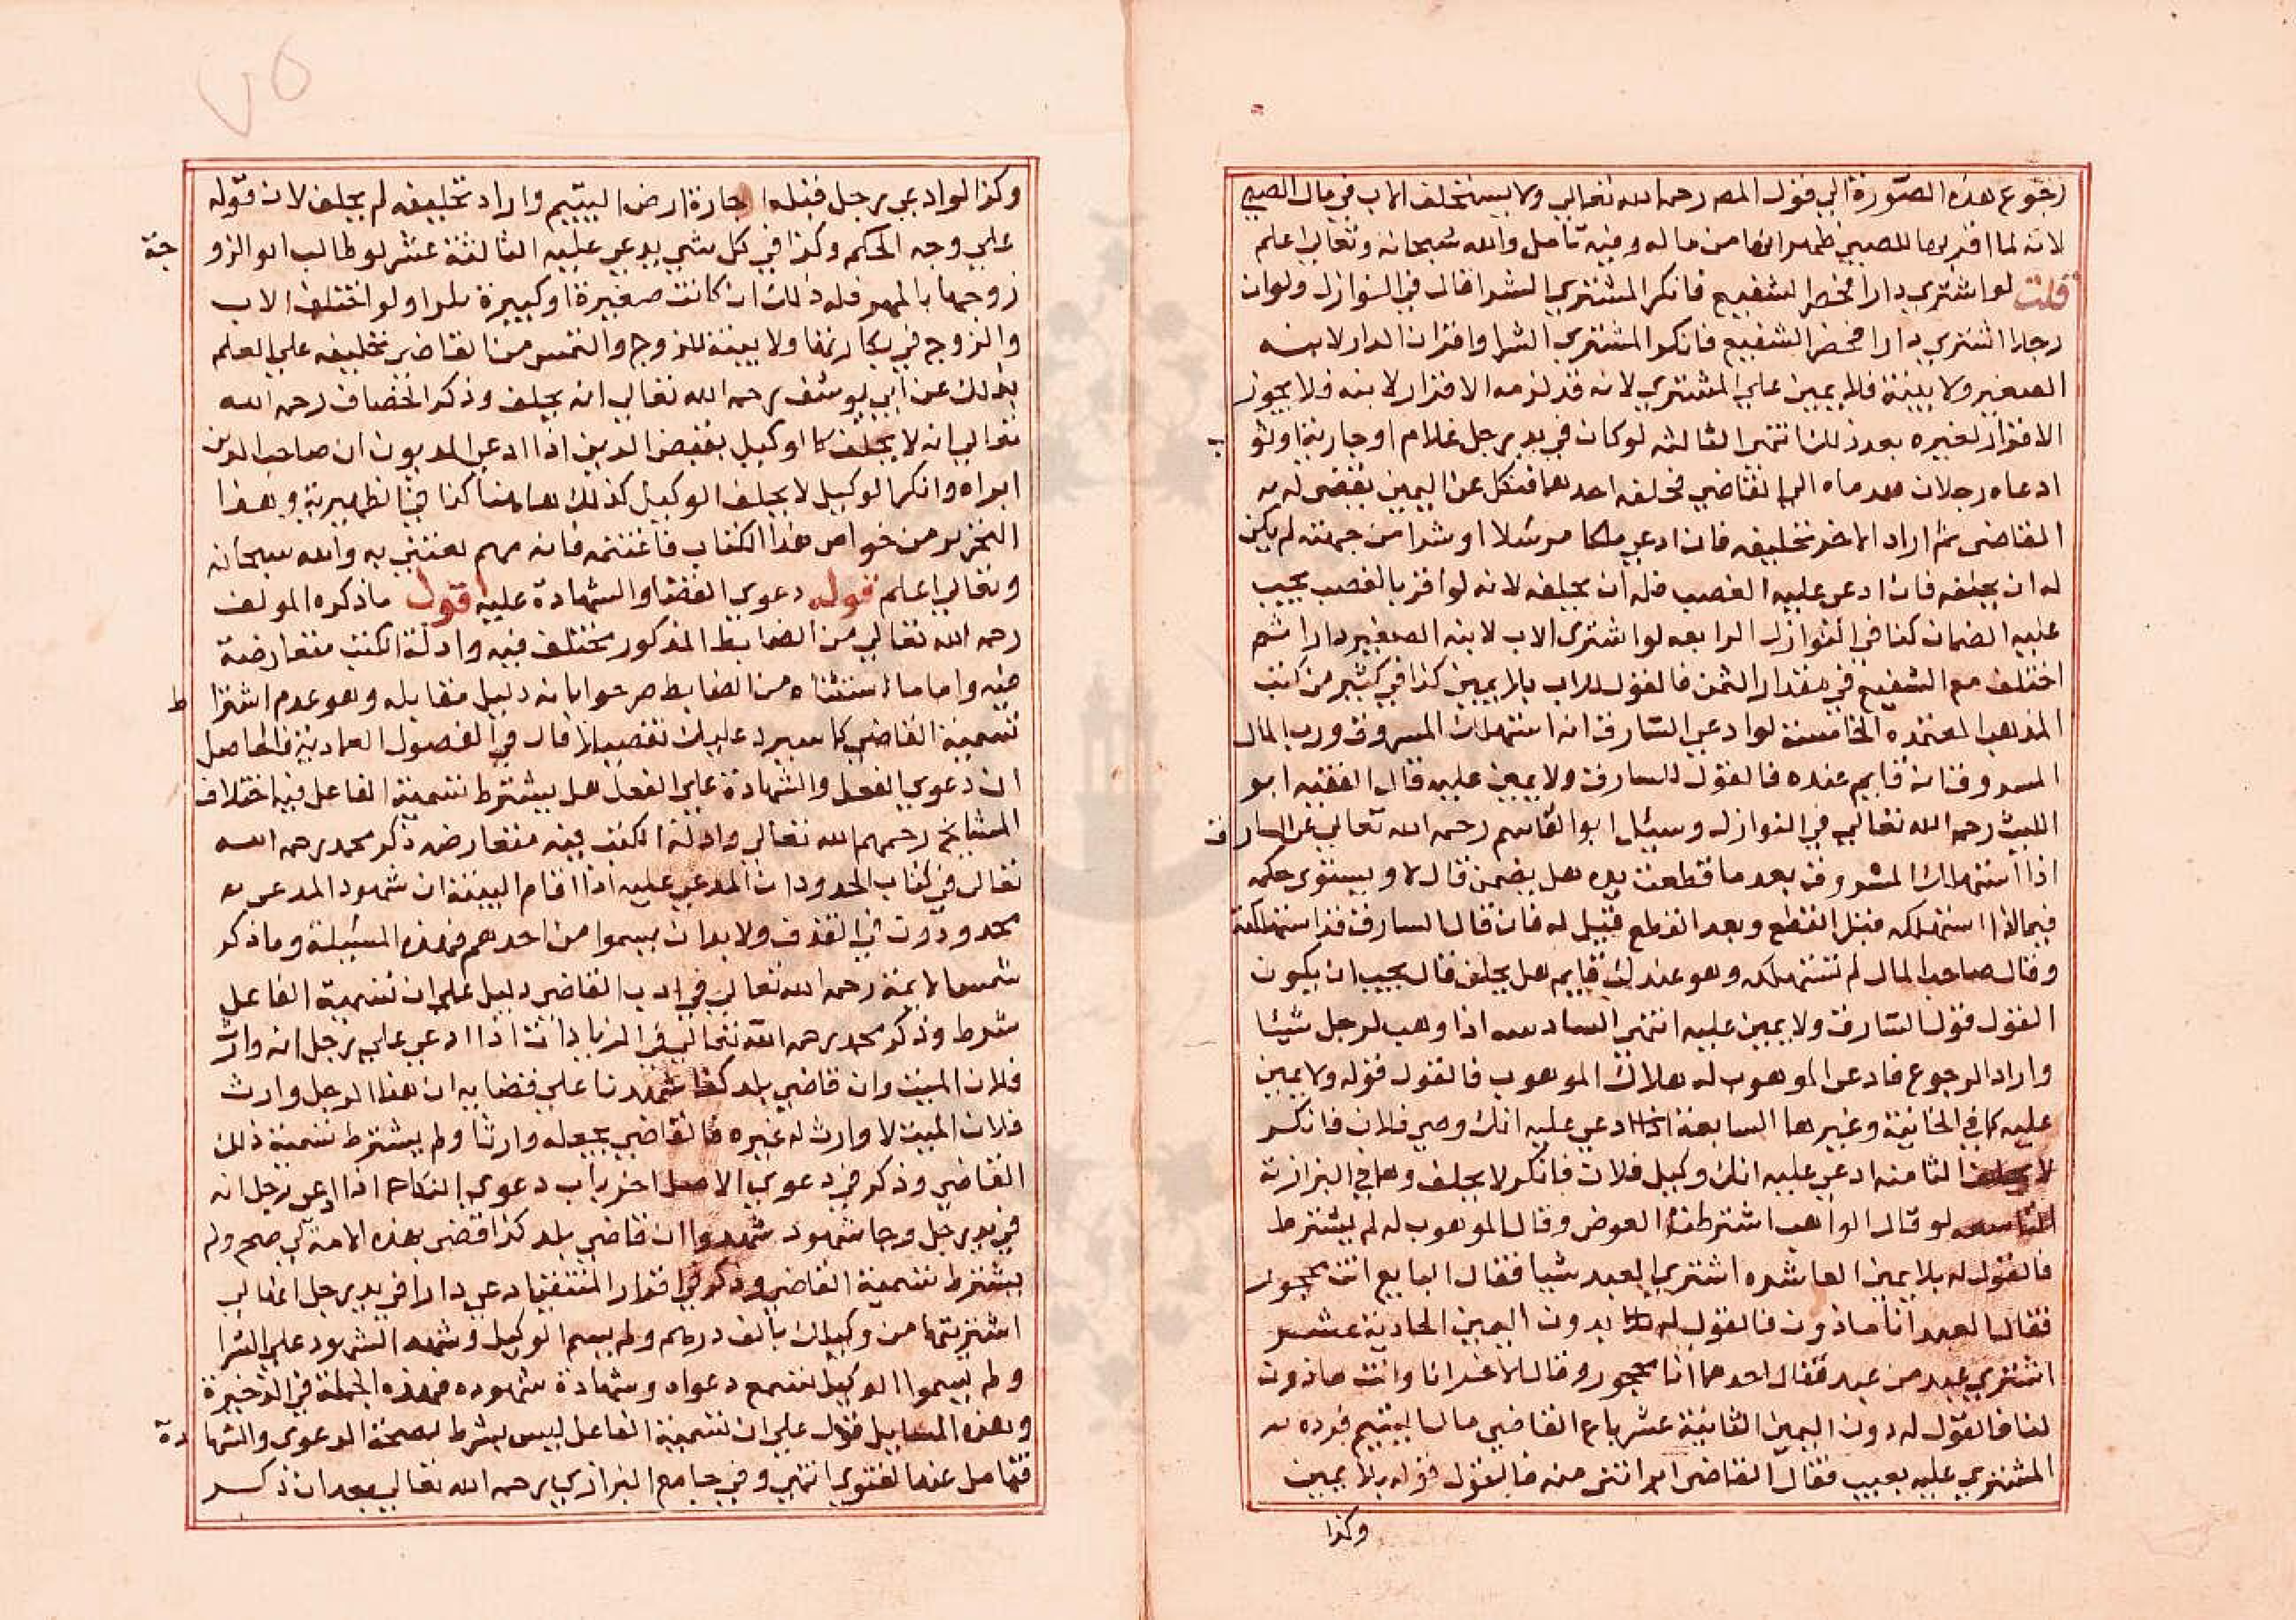 رجوع هذه الصورة الي قول المص رحمه الله تعالي ولا يستحلف الاب في مال الصبي
لانه لما اقر بها للصبي ظهر انها من ماله وفيه تامل والله سبحانه وتعالي اعلم
قلت لو اشتري دارا فحضر الشفيع فانكر المشتري الشرا قال في النوازل ولو ان
رجلا اشتري دارا فحضر الشفيع فانكر المشتري الشرا واقر ان الدار لابنه
الصغير ولا بينة فلا يمين علي المشتري لانه قد لزمه الاقرار لابنه فلا يجوز
الاقرار لغيره بعد ذلك انتهي الثالثه لو كان في يد رجل غلام او جارية او ثو ب
ادعاه رجلان فقدماه الي القاضي فحلفه احدهما فنكل عن اليمين فقضي له به
القاضي ثم اراد الاخر تحليفه فان ادعي ملكا مرسلا او شرا من جهته لم يكن
له ان يحلفه فان ادعي عليه الغصب فله ان يحلفه لانه لو اقر بالغصب يجب
عليه الضمان كذا في النوازل الرابعه لو اشتري الاب لابنه الصغير دارا ثم
اختلف مع الشفيع في مقدار الثمن فالقول للاب بلا يمين كذا في كثير من كتب
المذهب المعتمده الخامسة لو ادعي السارق انه استهلك المسروق ورب المال
المسروق انه قايم عنده فالقول للسارق ولا يمين عليه قال الفقيه ابو
الليث رحمه الله تعالي في النوازل وسيئل ابو القاسم رحمه الله تعالي عن السارق
اذا استهلك المسروق بعد ما قطعت يده هل يضمن قال لا ويستوي حكمه
فيما اذا استهلكه قبل القطع وبعد القطع قيل له فان قال السارق قد استهلكته
وقال صاحب المال لم تستهلكه وهو عندك قايم هل يحلف قال يجب ان يكون
القول قول السارق ولا يمين عليه انتهي السادسه اذا وهب لرجل شيئا
واراد الرجوع فادعي الموهوب له هلاك الموهوب فالقول قوله ولا يمين
عليه كما في الخانية وغيرها السابعة اذا ادعي عليه انك وصي فلان فانكر
لا يحلف الثامنه ادعي عليه انك وكيل فلان فانكر لا يحلف وهما في البزازية
التاسعه لو قال الواهب اشترطت العوض وقال الموهوب له لم يشترط
فالقول له بلا يمين العاشره اشتري العبد شيا فقال البايع انت محجور
فقال العبد انا ماذون فالقول له بدون اليمين الحادية عشر
اشتري عبد من عبد فقال احدهما انا محجور وقال الاخر انا وانت ماذون
لنا فالقول له دون اليمين الثانية عشر باع القاضي مال اليتيم فرده
المشتري عليه بعيب فقال القاضي ابراتني منه فالقول قوله بلا يمين
وكذا
وكذا لو ادعي رجل قبله اجارة ارض اليتيم واراد تحليفه لم يحلف لان قوله
علي وجه الحكم وكذا في كل شي يدعي عليه الثالثة عشر لو طالب ابو الزو جة
زوجها بالمهر فله ذلك ان كانت صغيرة او كبيرة بكرا ولو اختلف الاب
والزوج في بكارتها ولا بينة للزوج والتمس من القاضي تحليفه علي العلم
بذلك عن ابي يوسف رحمه الله تعالي انه يحلف وذكر الخصاف رحمه الله
تعالي انه لا يحلف كالوكيل بقبض الدين اذا ادعي المديون ان صاحب الدين
ابراه وانكر الوكيل لا يحلف الوكيل كذلك هاهنا كذا في الظهيرية وهذا
التحرير من خواص هذا الكتاب فاغتنمه فانه مهم يعتني به والله سبحانه
وتعالي اعلم قوله دعوي القضا والشهادة عليه اقول ما ذكره المولف
رحمه الله تعالي من الضابط المذكور مختلف فيه وادلة الكتب متعارضة
فيه واما ما استثناه من الضابط صرحوا بانه دليل مقابله وهو عدم اشترا ط
تسمية القاضي كما سيرد عليك تفصيلا قال في الفصول العمادية فالحاصل
ان دعوي الفعل والشهادة علي الفعل هل يشترط تسمية الفاعل فيه اختلاف
المشايخ رحمهم الله تعالي وادلة الكتب فيه متعارض ذكر محمد رحمه الله
تعالي في كتاب الحدود ان المدعي عليه اذا اقام البينة ان شهود المدعي
محدودون في القذف ولا بد ان يسموا من احدهم فهذه المسيلة وما ذكر
شمس الايمة رحمه الله تعالي في ادب القاضي دليل علي ان تسمية الفاعل
شرط وذكر محمد رحمه الله تعالي في الزيادات اذا ادعي علي رجل انه وارث
فلان الميت وان قاضي بلد كذا شهدنا علي قضايه ان هذا الرجل وارث
فلان الميت لا وارث له غيره فالقاضي يجعله وارثا ولم يشترط تسمية ذلك
القاضي وذكر في دعوي الاصل اخر باب دعوي النكاح اذا ادعي رجل انه
في يد رجل وجا شهود شهدوا ان قاضي بلد كذا قضي بهذه الامة لي صح ولم
يشترط تسمية القاضي وذكر في اقرار المنتقي ادعي دارا في يد رجل انها لي
اشتريتها من وكيلك بالف درهم ولم يسم الوكيل وشهد الشهود علي الشرا
ولم يسموا الوكيل تسمع دعواه وشهادة شهوده فهذه الجملة في الذخيرة
وهذه المسايل تدل علي ان تسمية الفاعل ليس بشرط لصحة الدعوي والشها دة
فتامل عند الفتوي انتهي وفي جامع البزازي رحمه الله تعالي بعد ان ذكر